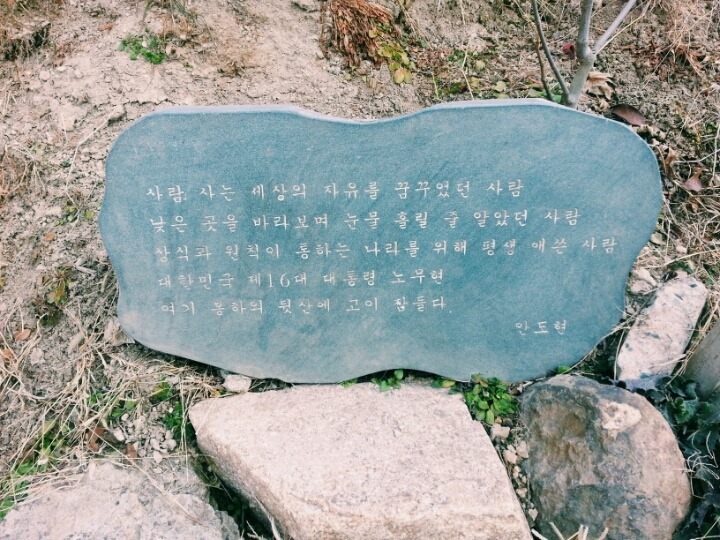 사람 사는 세상의 자유를 꿈꾸었던 사람
낮은 곳을 바라보며 눈물 흘릴 줄 알았던 사람
상식과 원칙이 통하는 나라를 위해 평생 애쓴 사람
대한민국 제16대 대통령 노무현
여기 봉하의 뒷산에 고이 잠들다.
안도현